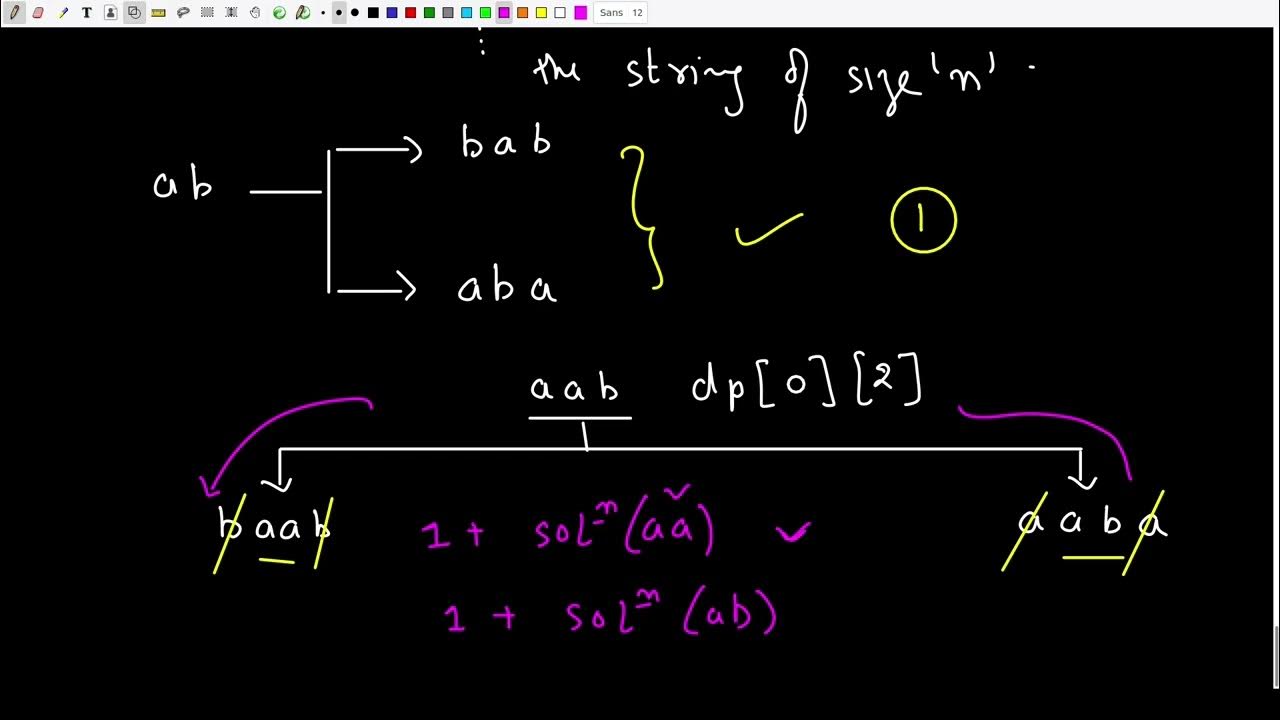 T Sans 12
the string of size 'n'.
bab
ab
1
aba
aab dp[0][2]
baab 1 + solⁿ(aa) aaba
1 + solⁿ(ab)